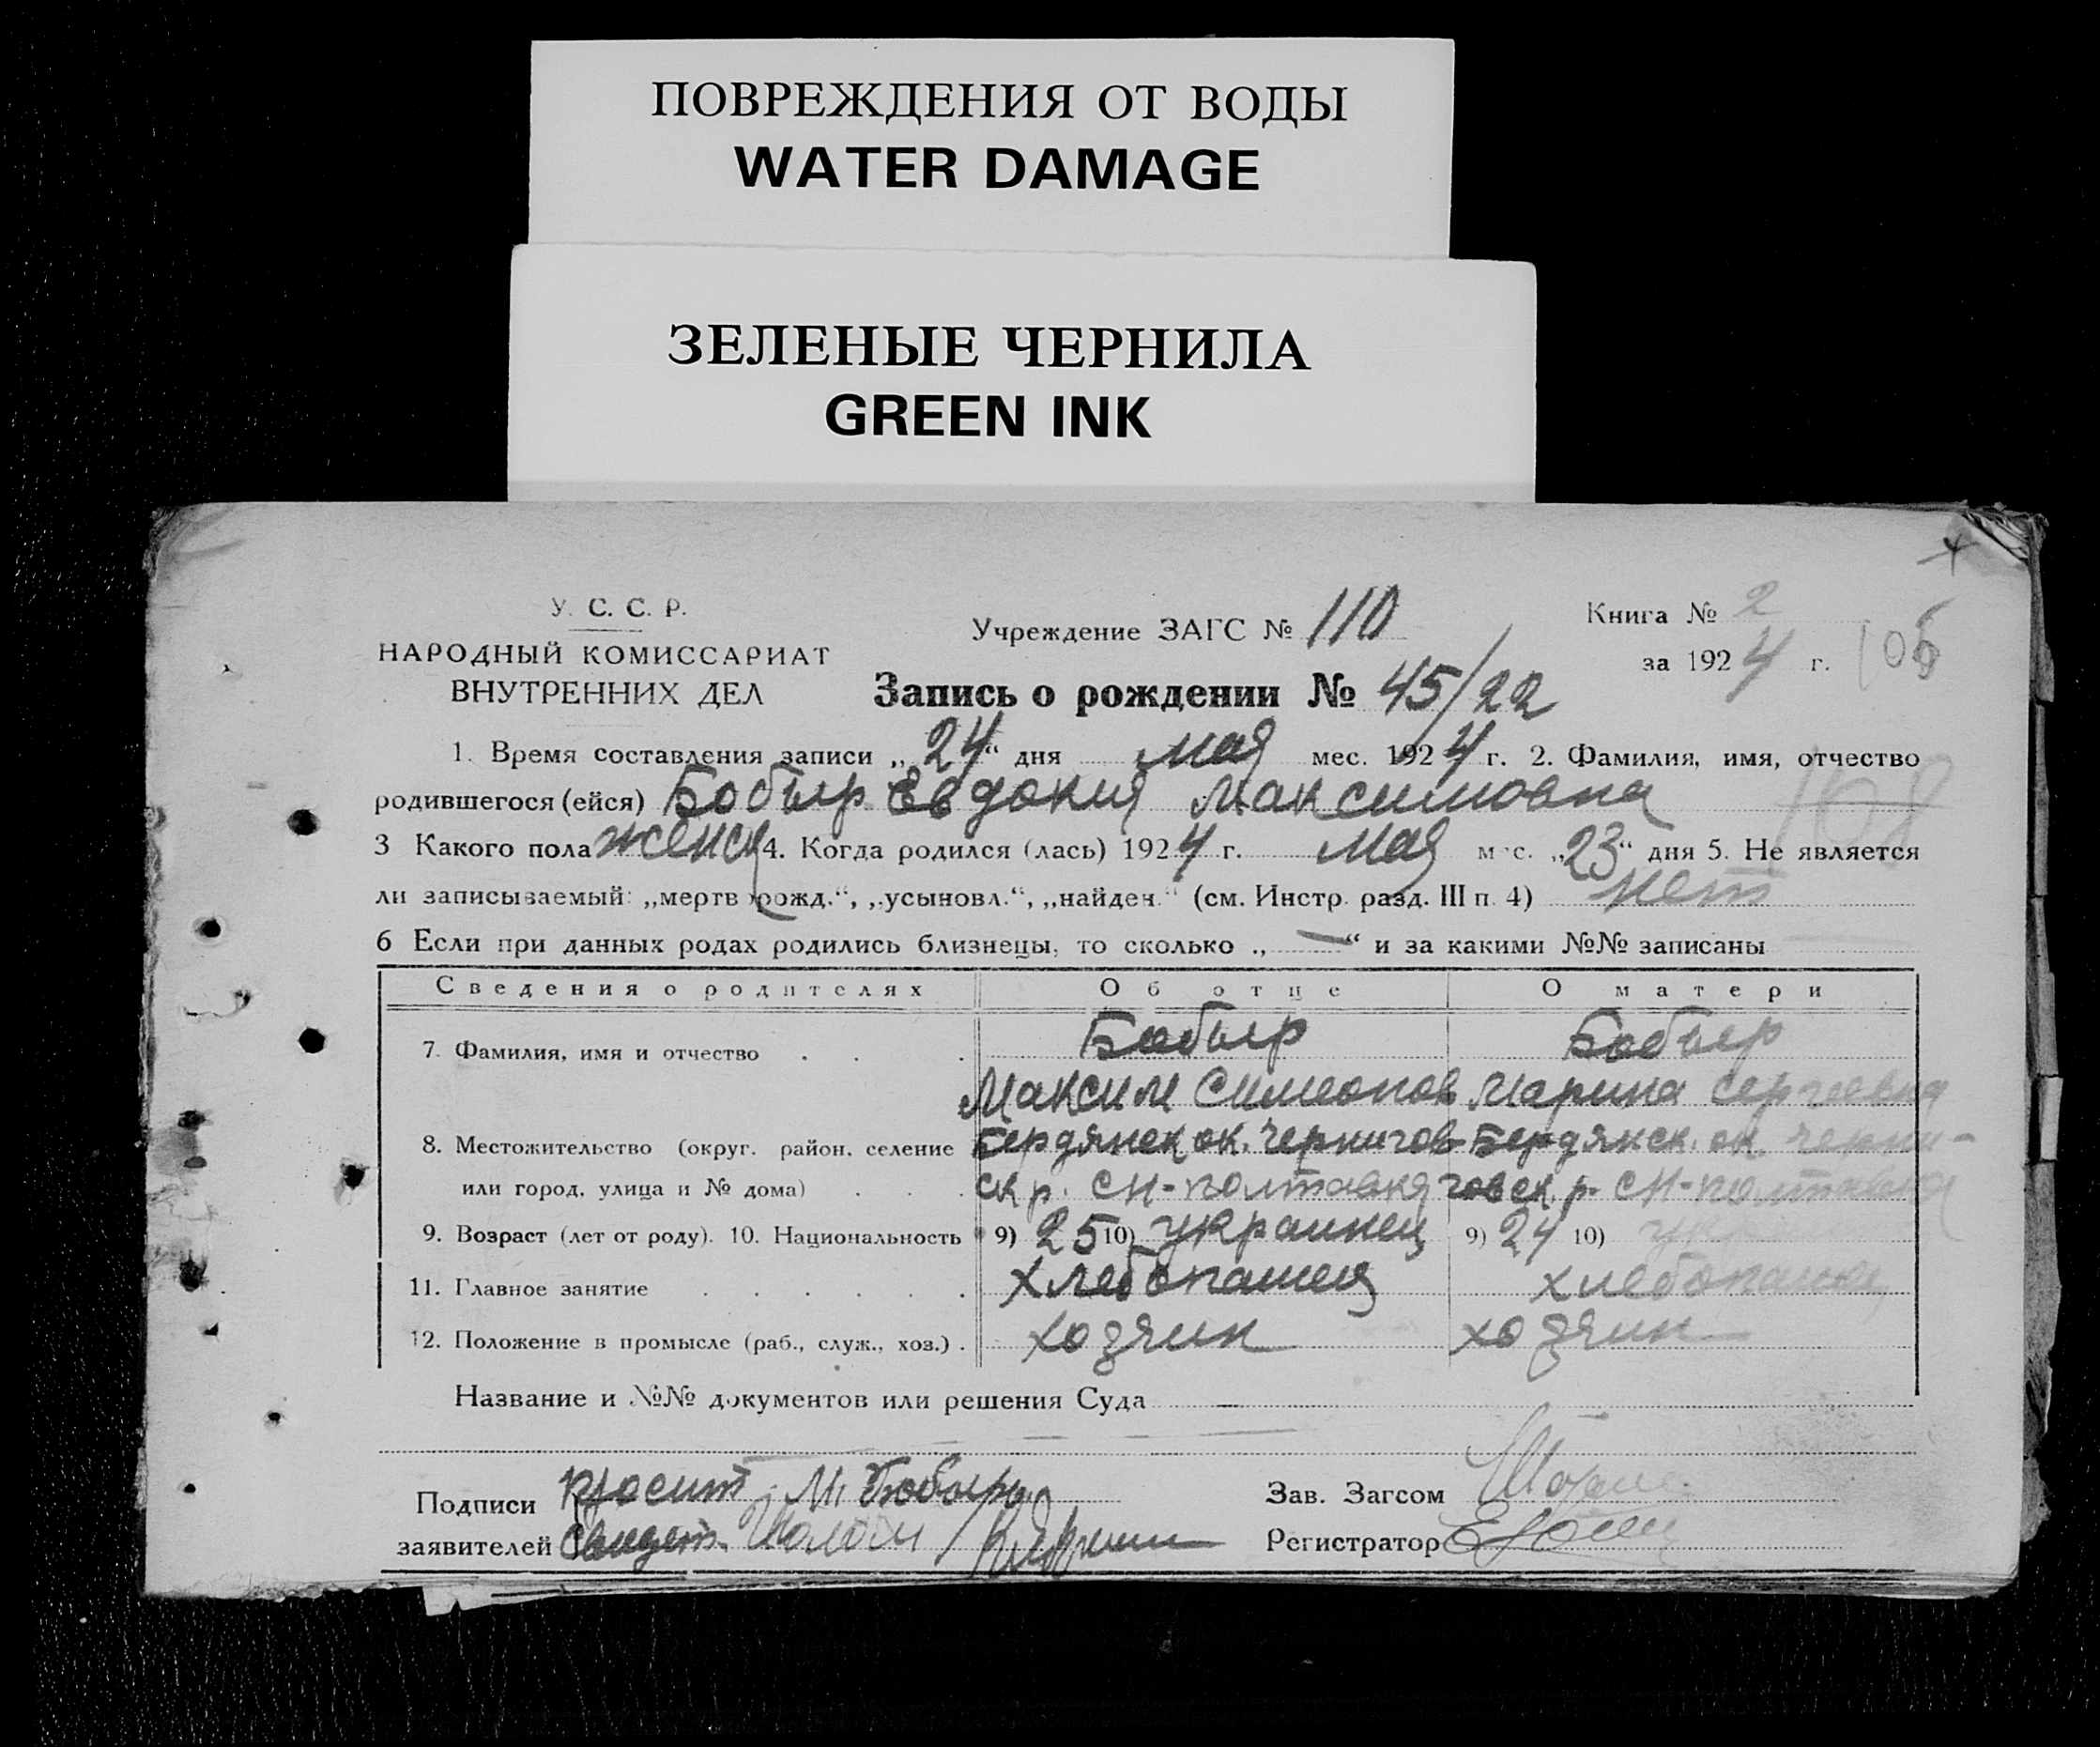 ПОВРЕЖДЕНИЯ ОТ ВОДЫ
WATER DAMAGE
ЗЕЛЕНЫЕ ЧЕРНИЛА
GREEN INK
У. С. С. Р.
НАРОДНЫЙ КОМИССАРИАТ
ВНУТРЕННИХ ДЕЛ
Учреждение ЗАГС № 110
Книга № 2
за 1924 г.
106
Запись о рождении № 45/22
1. Время составления записи „24“ дня мая мес. 1924 г. 2. Фамилия, имя, отчество
родившегося (ейся) Бобыр Евдокия Максимовна
108
3 Какого пола женск 4. Когда родился (лась) 1924 г. мая мес. „23“ дня 5. Не является
ли записываемый: „мертв рожд.“, „усыновл.“, „найден.“ (см. Инстр. разд. III п. 4) нет
6 Если при данных родах родились близнецы, то сколько „—“ и за какими №№ записаны
Сведения о родителях Об отце О матери
7. Фамилия, имя и отчество Бобыр Бобыр
Максим Симеонов Марина Сергеевна
8. Местожительство (округ. район, селение Бердянск ок. Чернигов- Бердянск. ок. Черни-
или город, улица и № дома) ск р. сн-полтавка говск. р. сн-полтавка
9. Возраст (лет от роду). 10. Национальность 9) 25 10) украинец 9) 24 10)
11. Главное занятие хлебопашец хлебопашец
12. Положение в промысле (раб., служ., хоз.) хозяин хозяин
Название и №№ документов или решения Суда —
Подписи просит М Бобырь
заявителей Свидет.
Зав. Загсом
Регистратор